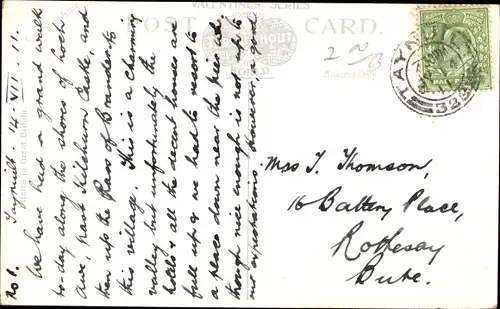 VALENTINE'S SERIES
POST CARD.
No 1. Taynuilt. 14. VII. 11.
We have had a grand walk
to-day along the shores of Loch
Awe, past Kilchurn Castle, and
then up the Pass of Brander to
this village. This is a charming
valley but unfortunately the
hotels & all the decent houses are
full up & we had to resort to
a place down near the pier wh.
though nice enough is not up to
our expectations. However, a good
Miss J. Thomson,
16 Battery Place,
Rothesay
Bute.
TAYNUILT
323